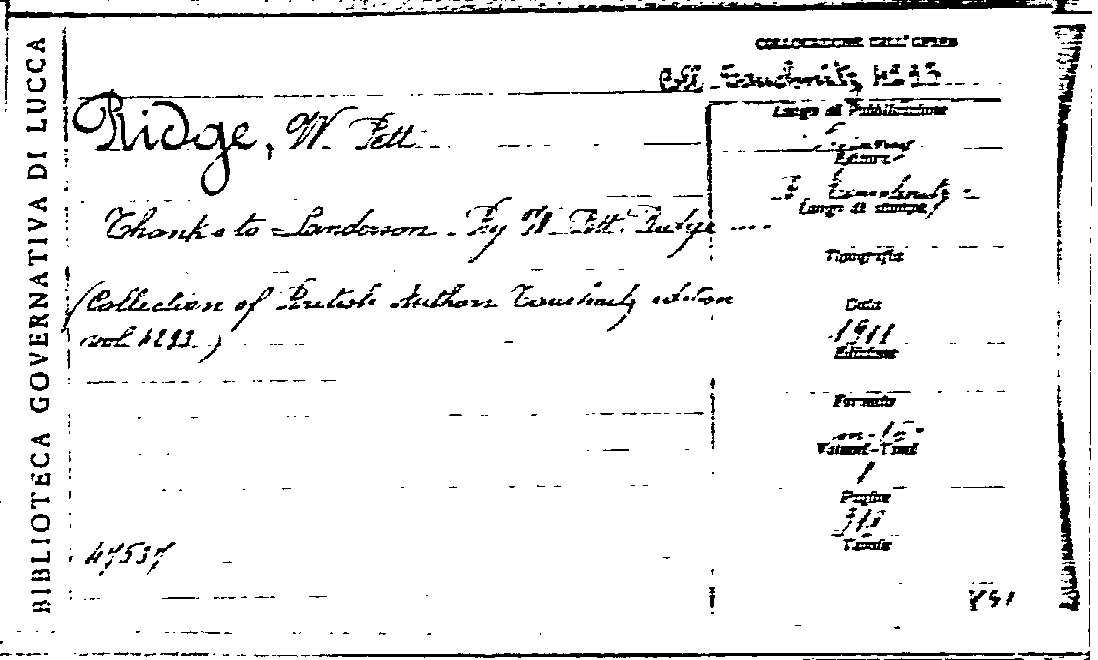 BIBLIOTECA GOVERNATIVA DI LUCCA
COLLOCAZIONE DELL'OPERA
Coll. Tauchnitz
Ridge, W. Pett
Thanks to Sanderson. By W. Pett Ridge
(Collection of British Authors Tauchnitz edition
vol.
Luogo di Pubblicazione
Editore
B. Tauchnitz
Luogo di stampa
Tipografia
Data
1911
Edizione
Formato
in-16°
Volumi-Tomi
1
Pagine
Tavole
47537